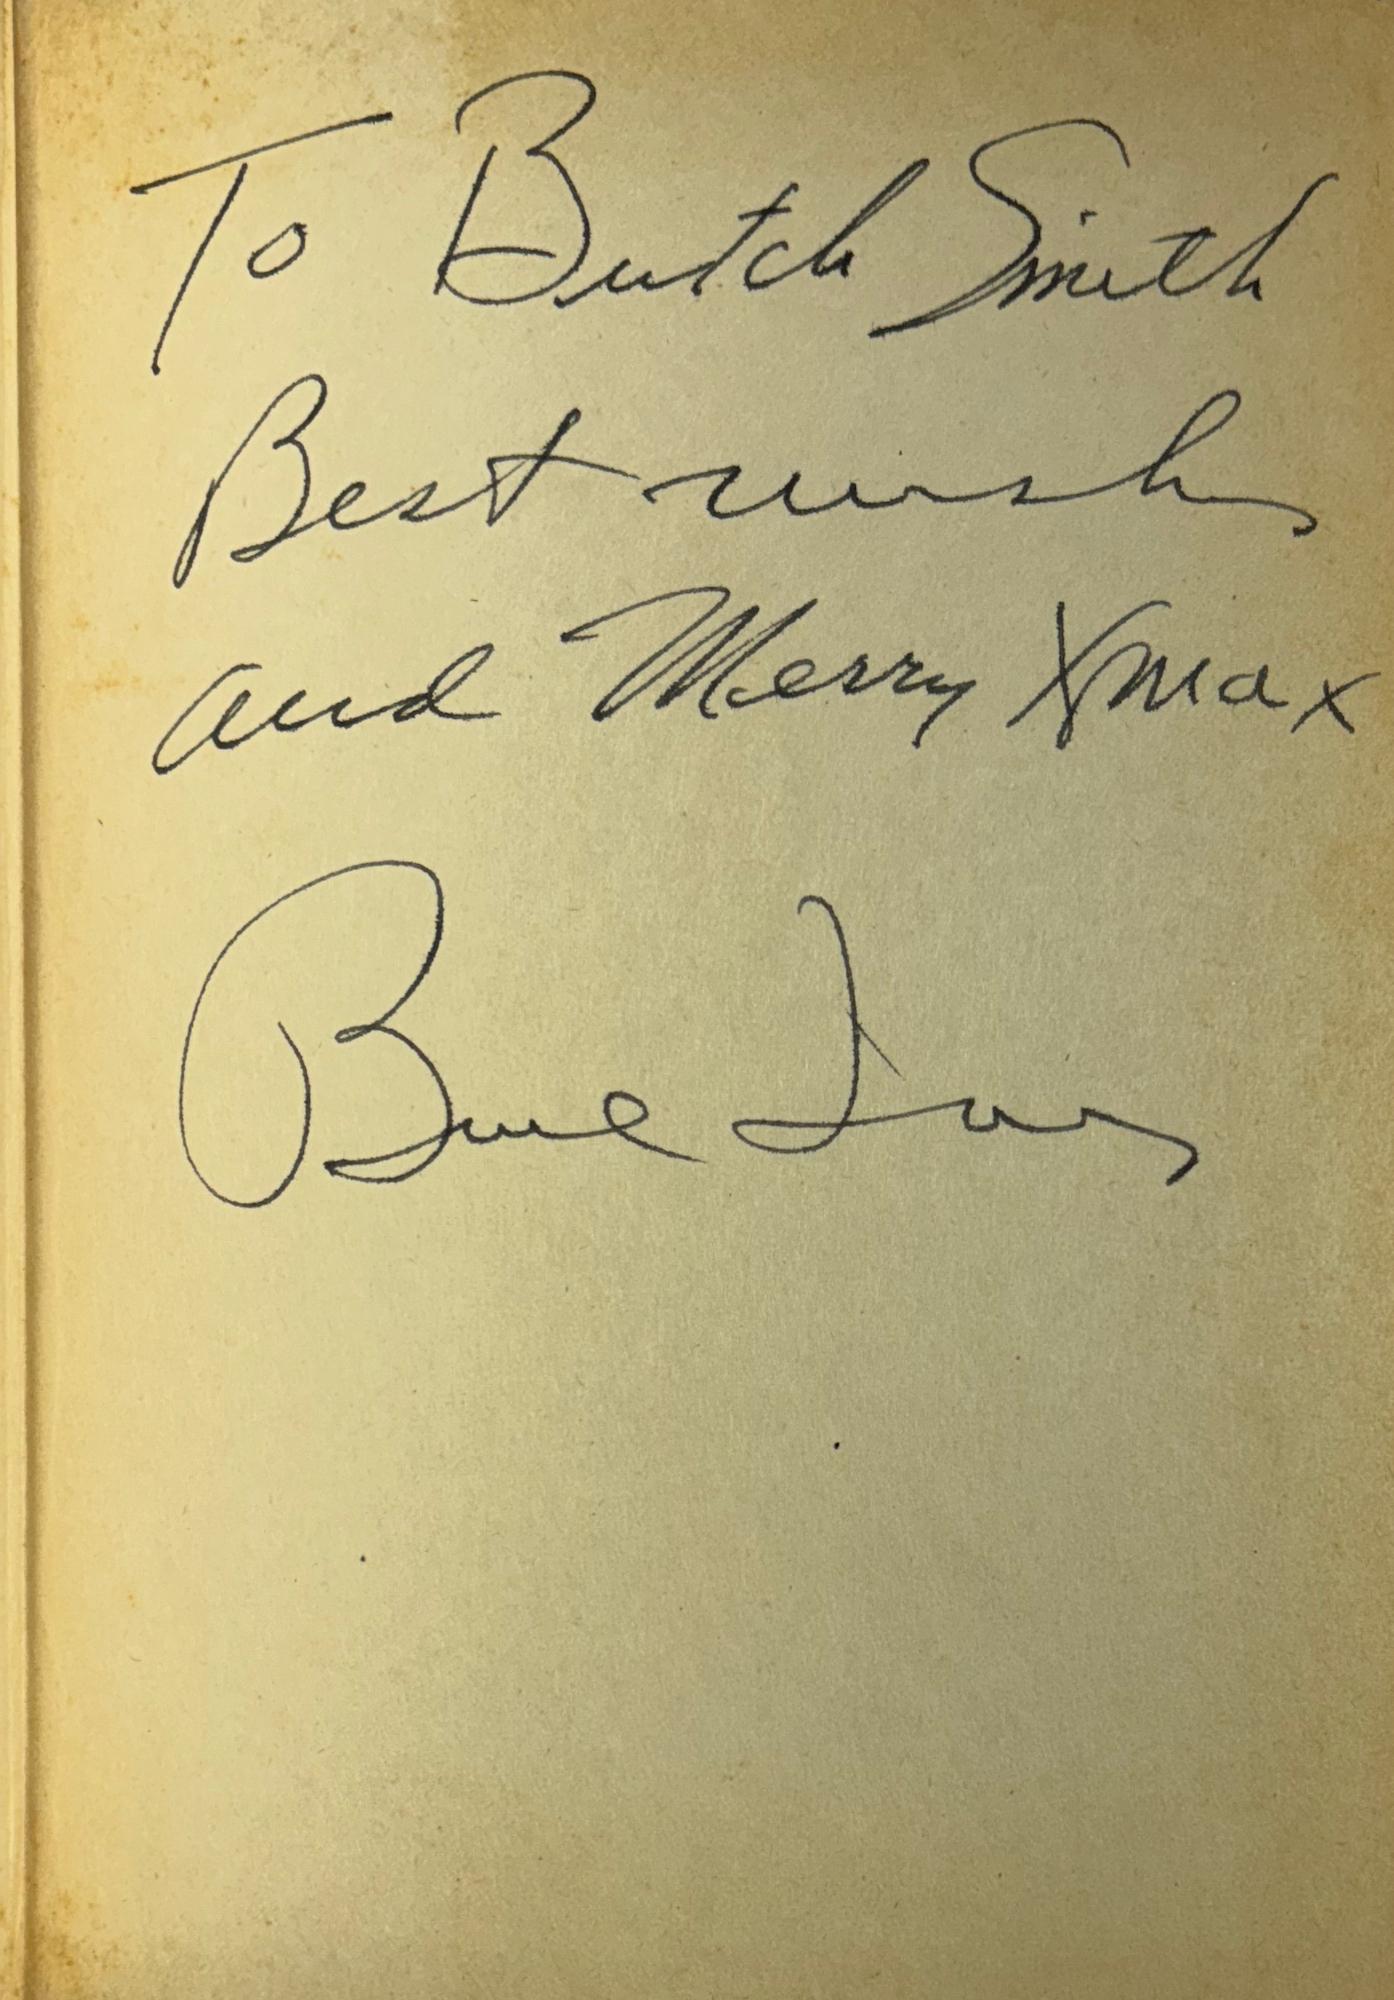 To Butch Smith
Best wishes
and Merry Xmas
Burl Ives